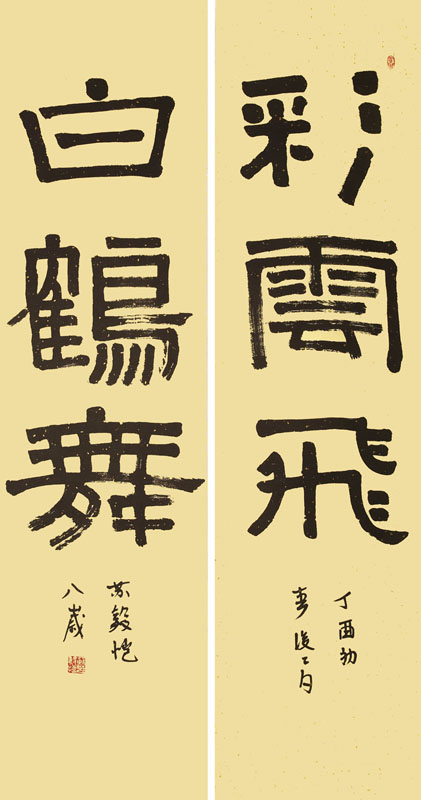 彩雲飛
丁酉初
春
白鶴舞
苏毅恺
八歲